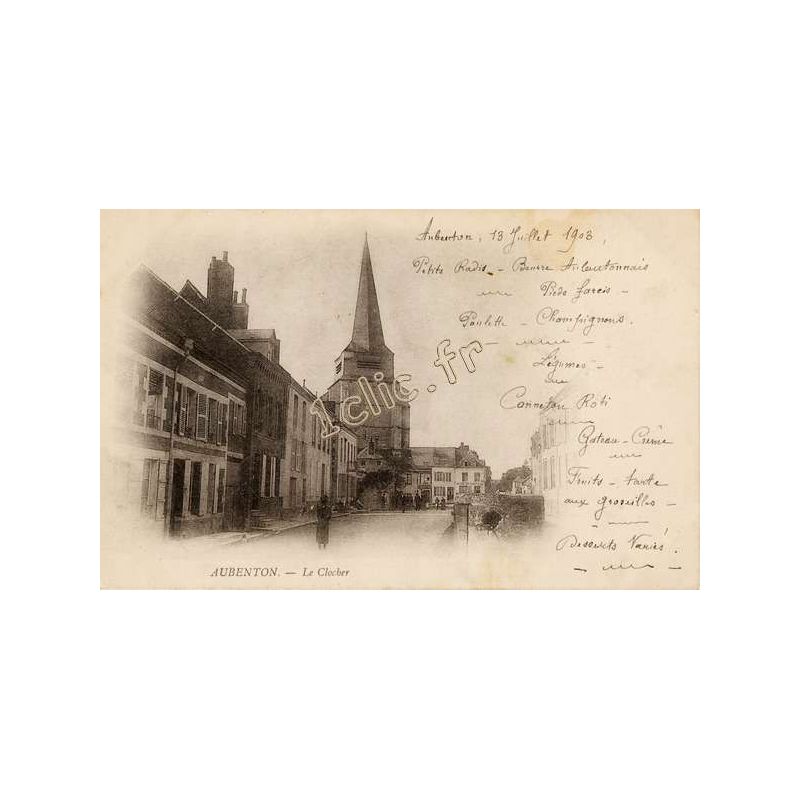 Aubenton, 13 Juillet 1903,
Petits Radis - Beurre Aubentonnais
Pieds farcis -
Poulette - Champignons.
Légumes -
Canneton Rôti
Gateau - Crème
Fruits - tarte
aux groseilles -
Desserts Variés.
1clic.fr
AUBENTON. — Le Clocher